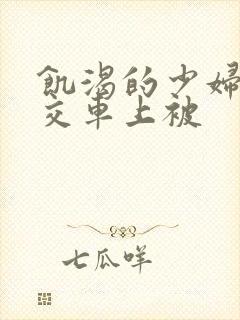 飢渴的少婦
交車上被
七瓜咩